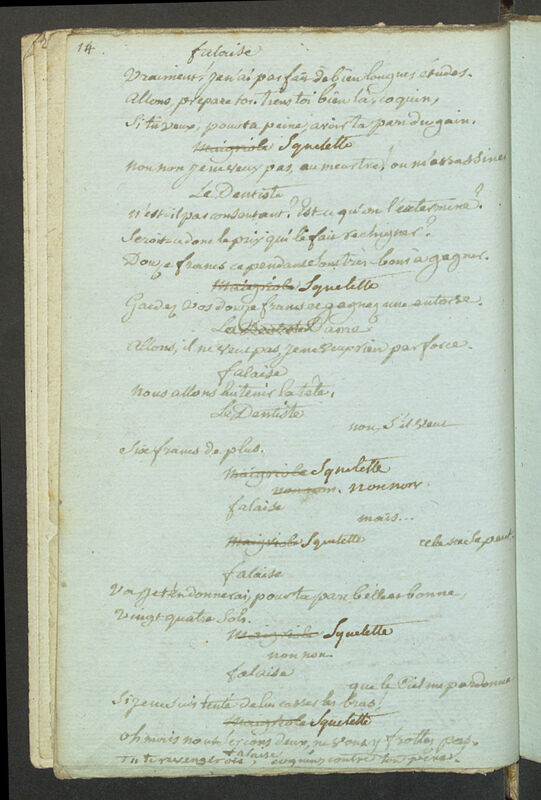 14.
falaise
Vraiment, j'en ai pas fait de bien longues études.
Allons, prepare toi, tiens toi bien là, coquin,
Si tu veux, pour ta peine, avoir ta part du gain.
Maigriole Squelette
non non je ne veux pas, au meurtre! on m'assassine
Le Dentiste
n'est-il pas consentant? Est ce qu'on l'extermine?
Seroit ce donc le prix qui le fait rechigner?
Douze francs cependant sont tres bons à gagner.
Maigriole Squelette
Gardez vos douze francs et gagnez une entorse.
La Dame
Allons, il ne veut pas, je ne veux rien par force.
falaise
nous allons lui tenir la tete.
Le Dentiste
non, s'il veut
Six francs de plus.
Maigriole Squelette
non non. non non.
falaise
mais...
Maigriole Squelette cela ne se peut.
falaise
Va je t'en donnerai, pour ta part belle et bonne,
Vingt quatre sols.
Maigriole Squelette
non non
falaise
que le Ciel me pardonne
Si je ne suis tenté de lui casser les bras!
Maigriole Squelette
oh mais nous serions deux, ne vous y frottez pas.
falaise
Tu te revengerois, coquin, contre ton